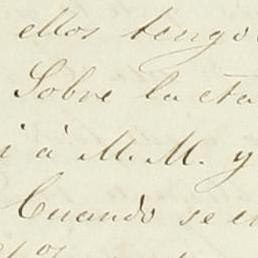 ellos tengo
Sobre la eta
i á M. M. y
Cuando se en